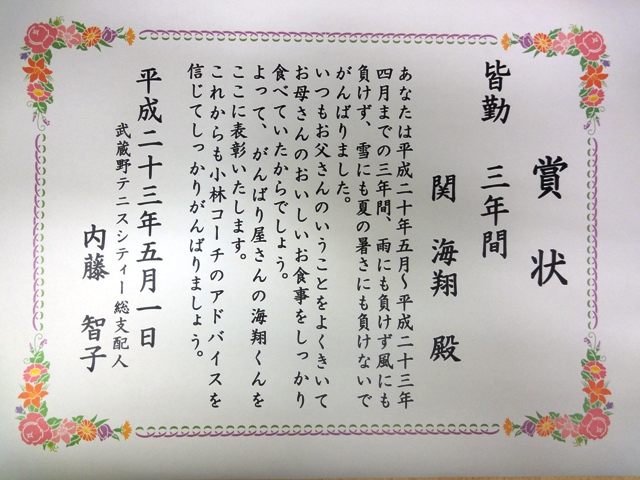 賞状
皆勤 三年間
関 海翔 殿
あなたは平成二十年五月～平成二十三年
四月までの三年間、雨にも負けず風にも
負けず、雪にも夏の暑さにも負けないで
がんばりました。
いつもお父さんのいうことをよくきいて
お母さんのおいしいお食事をしっかり
食べていたからでしょう。
よって、がんばり屋さんの海翔くんを
ここに表彰いたします。
これからも小林コーチのアドバイスを
信じてしっかりがんばりましょう。
平成二十三年五月一日
武蔵野テニスシティー総支配人
内藤 智子